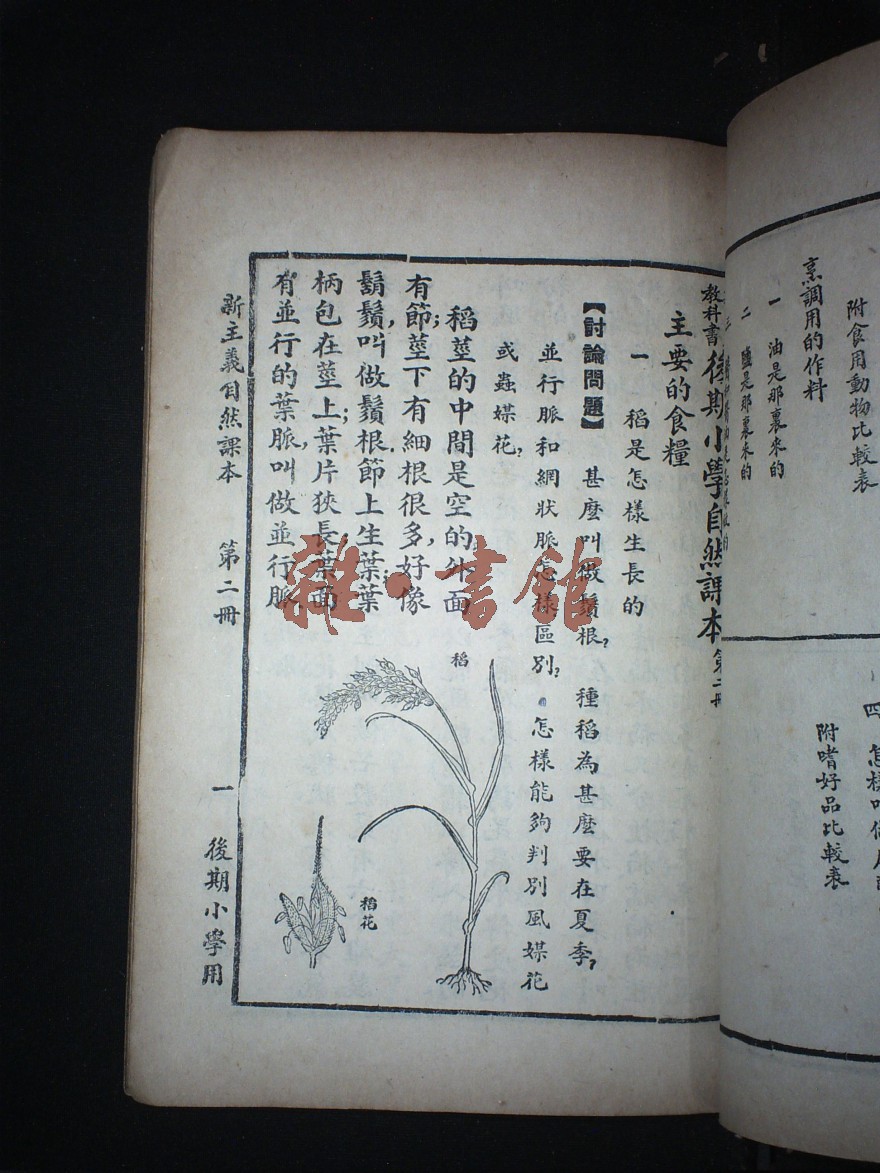 附食用動物比較表
烹調用的作料
一 油是那裏來的
二 鹽是那裏來的
四 怎樣叫做
附嗜好品比較表
教科書 後期小學自然課本 第二冊
主要的食糧
一 稻是怎樣生長的
【討論問題】 甚麼叫做鬚根？ 種稻為甚麼要在夏季？
並行脈和網狀脈怎樣區別？ 怎樣能夠判別風媒花
或蟲媒花？
稻莖的中間是空的，外面
有節；莖下有細根很多，好像
鬍鬚，叫做鬚根。節上生葉；葉
柄包在莖上；葉片狹長；葉面
有並行的葉脈，叫做並行脈。
稻
稻花
新主義自然課本 第二冊 一 後期小學用
雜·書館